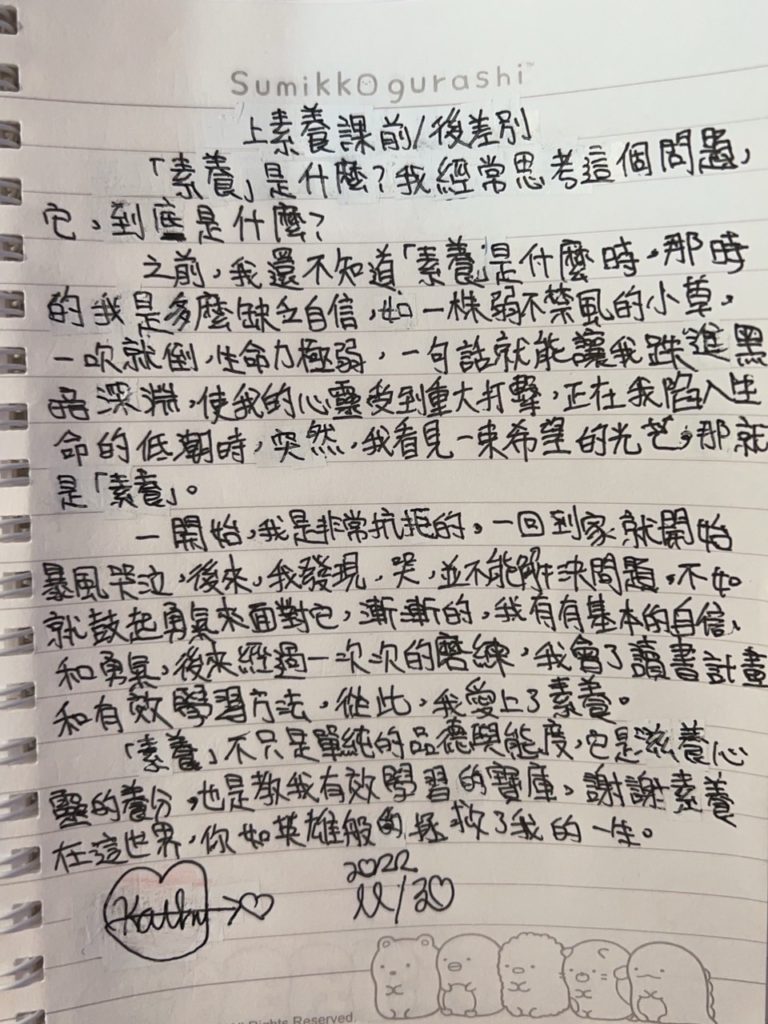 Sumikkogurashi™
上素養課前/後差別
「素養」是什麼?我經常思考這個問題,
它,到底是什麼?
之前,我還不知道「素養」是什麼時,那時
的我是多麼缺乏自信,如一株弱不禁風的小草,
一吹就倒,生命力極弱,一句話就能讓我跌進黑
暗深淵,使我的心靈受到重大打擊,正在我陷入生
命的低潮時,突然,我看見一束希望的光芒,那就
是「素養」。
一開始,我是非常抗拒的,一回到家就開始
暴風哭泣,後來,我發現,哭,並不能解決問題,不如
就鼓起勇氣來面對它,漸漸的,我有有基本的自信、
和勇氣,後來經過一次次的磨練,我會了讀書計畫
和有效學習方法,從此,我愛上了素養。
「素養」不只是單純的品德與態度,它是滋養心
靈的養分,也是教我有效學習的寶庫,謝謝素養
在這世界,你如英雄般的拯救了我的一生。
Kathy
2022
11/30
All Rights Reserved.